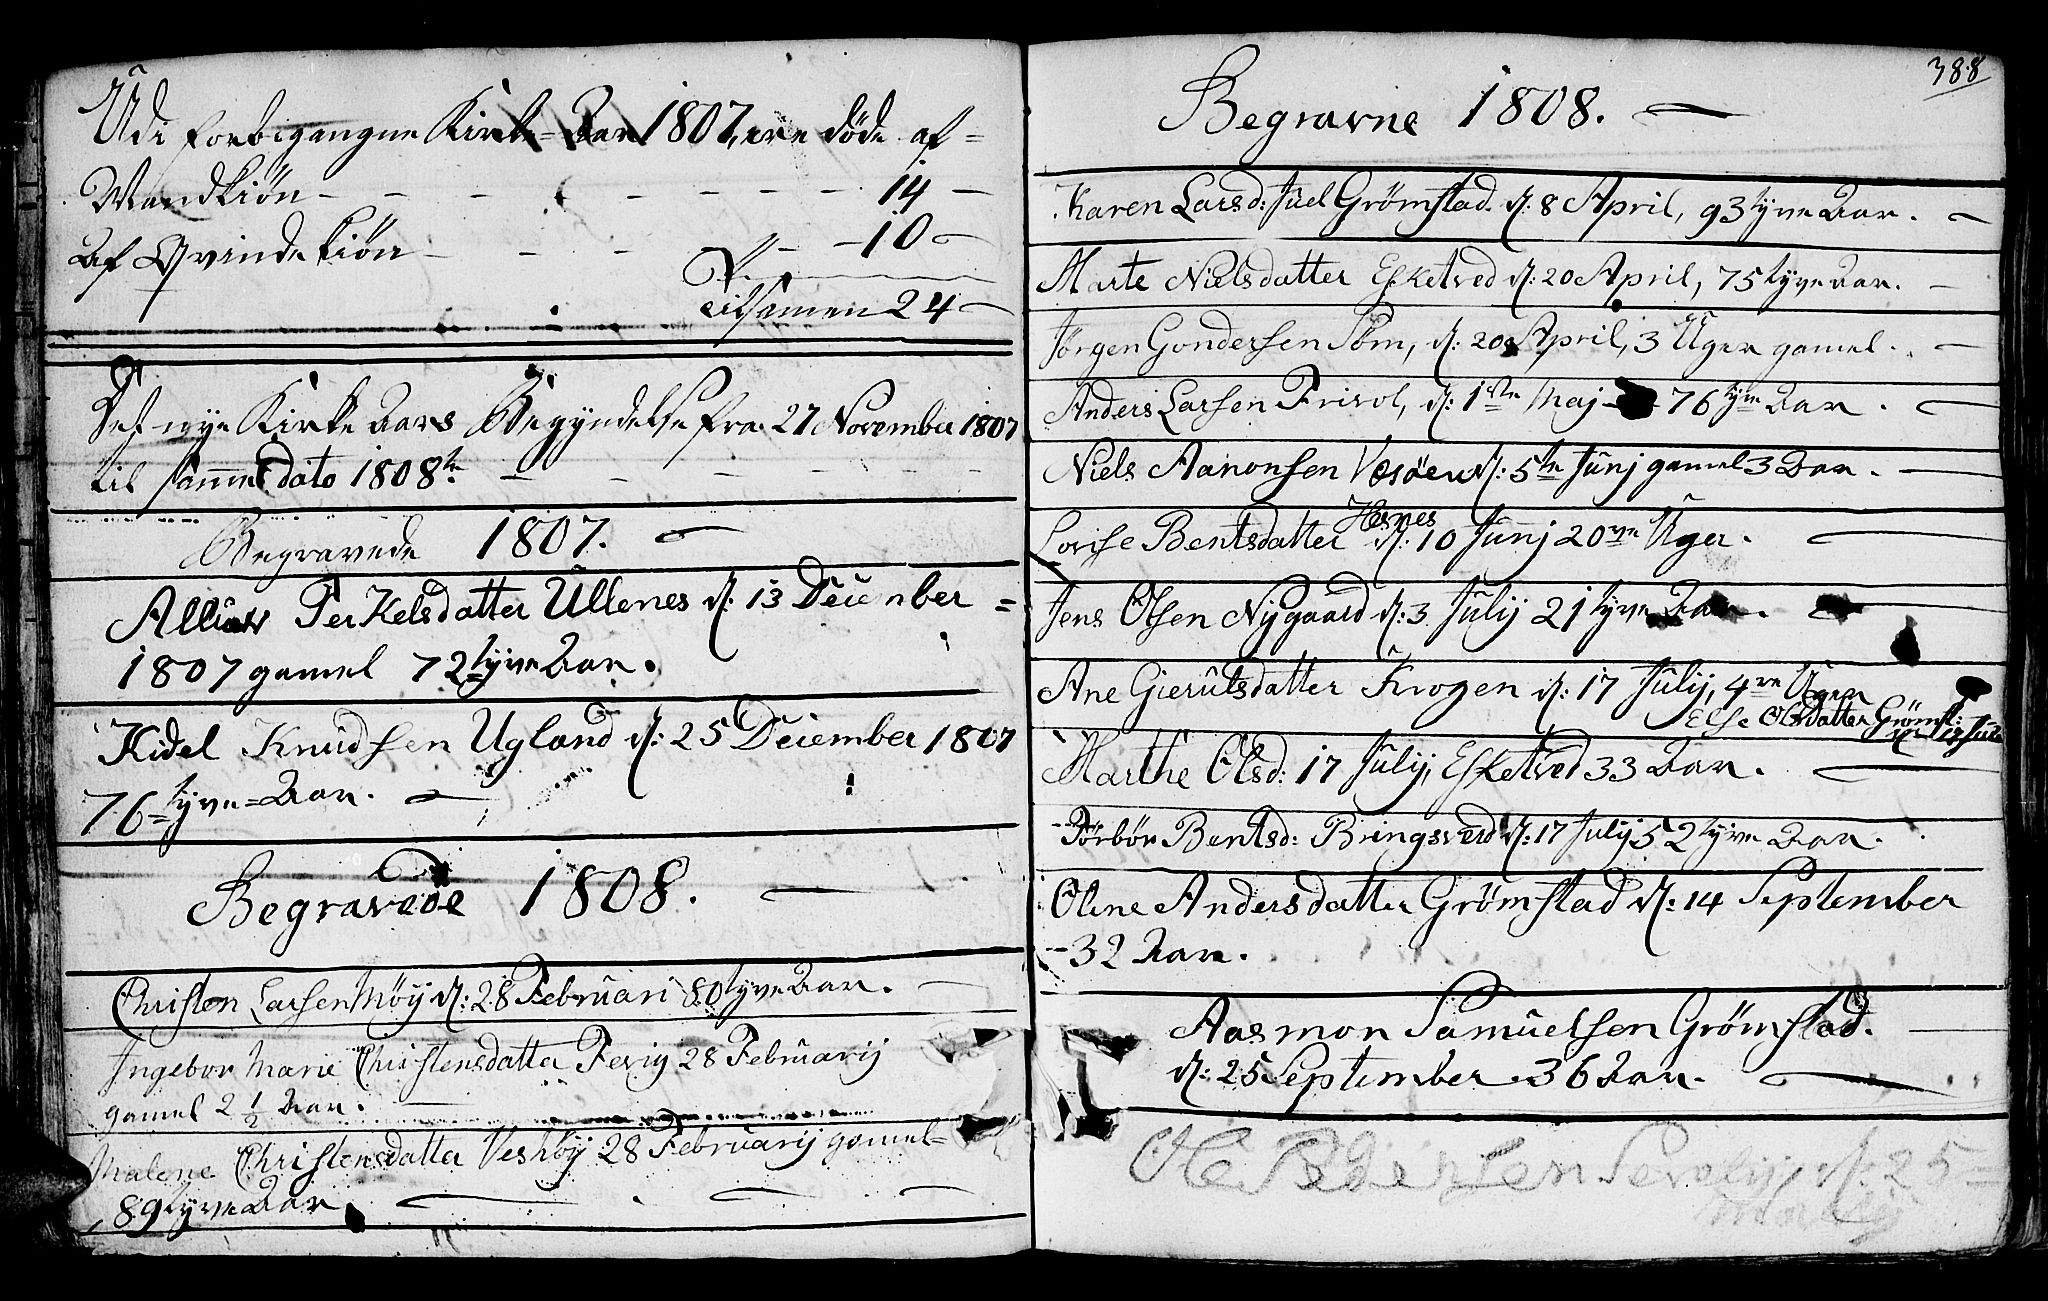 Udi forbigangne Kirke-Aar 1807, ere døde af-
Mandkiøn - - - - - - - - 14 -
af Qvindekiøn - - - - - 10 -
tilsamen 24 -
Det nye Kirke Aars Begyndelse fra 27 November 1807
til samme dato 1808te
Begravede 1807.
Terkelsdatter Ullenes d: 13 December =
1807 gamel 72tyve Aar.
Kidel Knudsen Ugland d: 25 December 1807
76=tyve=Aar.
Begravede 1808.
Christen Larsen Møÿ d: 28 Februari 80tyve Aar.
Ingebor Marie Christensdatter Fevig 28 Februarij
gamel 2 1/2 Aar.
Malene Christensdatter Veshøÿ 28 Februarij gamel=
89tyve Aar
388
Begravne 1808.
Karen Larsd: Juel Grømstad. d: 8 April, 93tyve Aar.
Marte Nielsdatter Esketved d: 20 April, 75tyve Aar.
Jørgen Gondersen Søm, d: 20 April, 3 Uger gamel.
Anders Larsen Frivol, d: 1ste Maj 76tyve Aar.
Niels Aanonsen Vesøen d: 5te Junj gamel 3 Aar.
Hesnes
Lovise Bentsdatter d: 10 Junj 20ve Uger.
Jens Olsen Nygaard d: 3 Julij 21tyve Aar.
Ane Gierulsdatter Krogen d: 17 Julij, 4re Uger
Else Olsdatter Grømst:
Marthe Olsd: 17 Julij, Esketved 33 Aar.
Tørbør Bentsd: Bringsverd d: 17 Julij 52tyve Aar.
Oline Andersdatter Grømstad d: 14 September
-32 Aar.
Aasmon Samuelsen Grømstad.
d: 25 September 36 Aar.
Ole Pedersen d: 25=